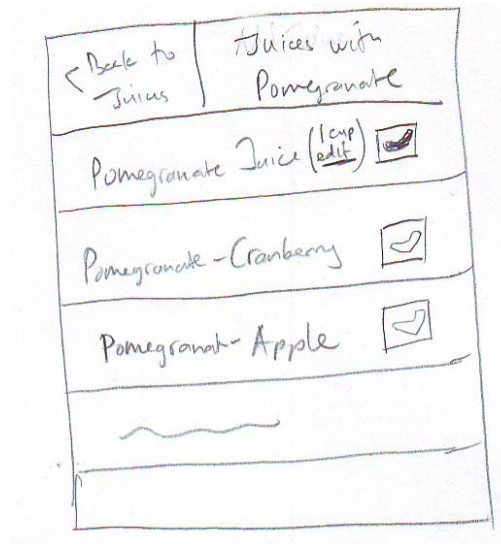 < Back to
Juices
Juices with
Pomegranate
Pomegranate Juice (1 cup
edit)
Pomegranate-Cranberry
Pomegranat-Apple